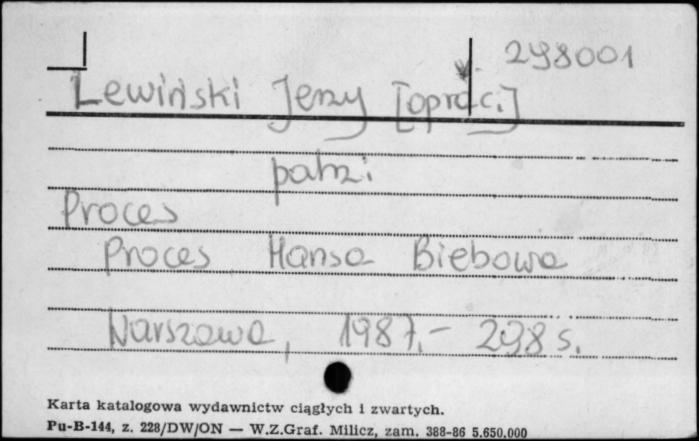 298001
Lewiński Jerzy [oprac.]
patrz:
Proces
Proces Hansa Biebowa
Warszawa, 1987.- 298 s.
Karta katalogowa wydawnictw ciągłych i zwartych.
Pu-B-144, z. 228/DW/ON — W.Z.Graf. Milicz, zam. 388-86 5.650.000